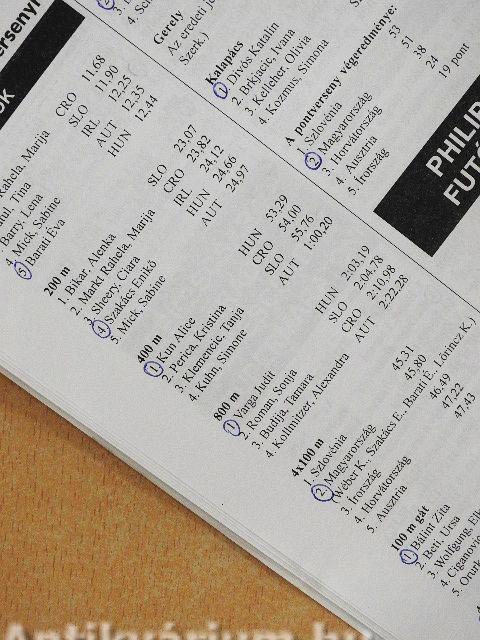 ersenyi
OK
Rahela, Marija CRO 11,68
Tina SLO 11,90
Barry, Lena IRL 12,25
4. Mick, Sabine AUT 12,35
5. Barati Éva HUN 12,44
200 m
1. Bikar, Alenka SLO 23,07
2. Markt Rahela, Marija CRO 23,82
3. Sheery, Ciara IRL 24,12
4. Szakács Enikő HUN 24,66
5. Mick, Sabine AUT 24,97
400 m
1. Kun Alice HUN 53,29
2. Perica, Kristina CRO 54,00
3. Klemencic, Tanja SLO 55,76
4. Kuhn, Simone AUT 1:00,20
800 m
1. Varga Judit HUN 2:03,19
2. Roman, Sonja SLO 2:04,78
3. Budija, Tamara CRO 2:10,98
4. Kollmitzer, Alexandra AUT 2:22,28
4x100 m
1. Szlovénia 45,31
2. Magyarország 45,80
(Wéber K., Szakács E., Barati É., Lőrincz K.)
3. Írország 46,49
4. Horvátország 47,22
5. Ausztria 47,43
100 m gát
1. Bálint Zita
2. Beti, Ursa
3. Wolfgang,
4. Ciganovic
5.
Gerely
Az eredeti
Szerk.)
Kalapács
1. Divós Katalin
2. Brkjacic, Ivana
3. Kelleher, Olivia
4. Kozmus, Simona
A pontverseny végeredménye:
1. Szlovénia 53
2. Magyarország 51
3. Horvátország 38
4. Ausztria 24
5. Írország 19 pont
PHILIP
FUTÓ
Antikvárium.hu